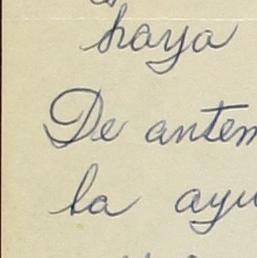 haya
De antem
la ayu